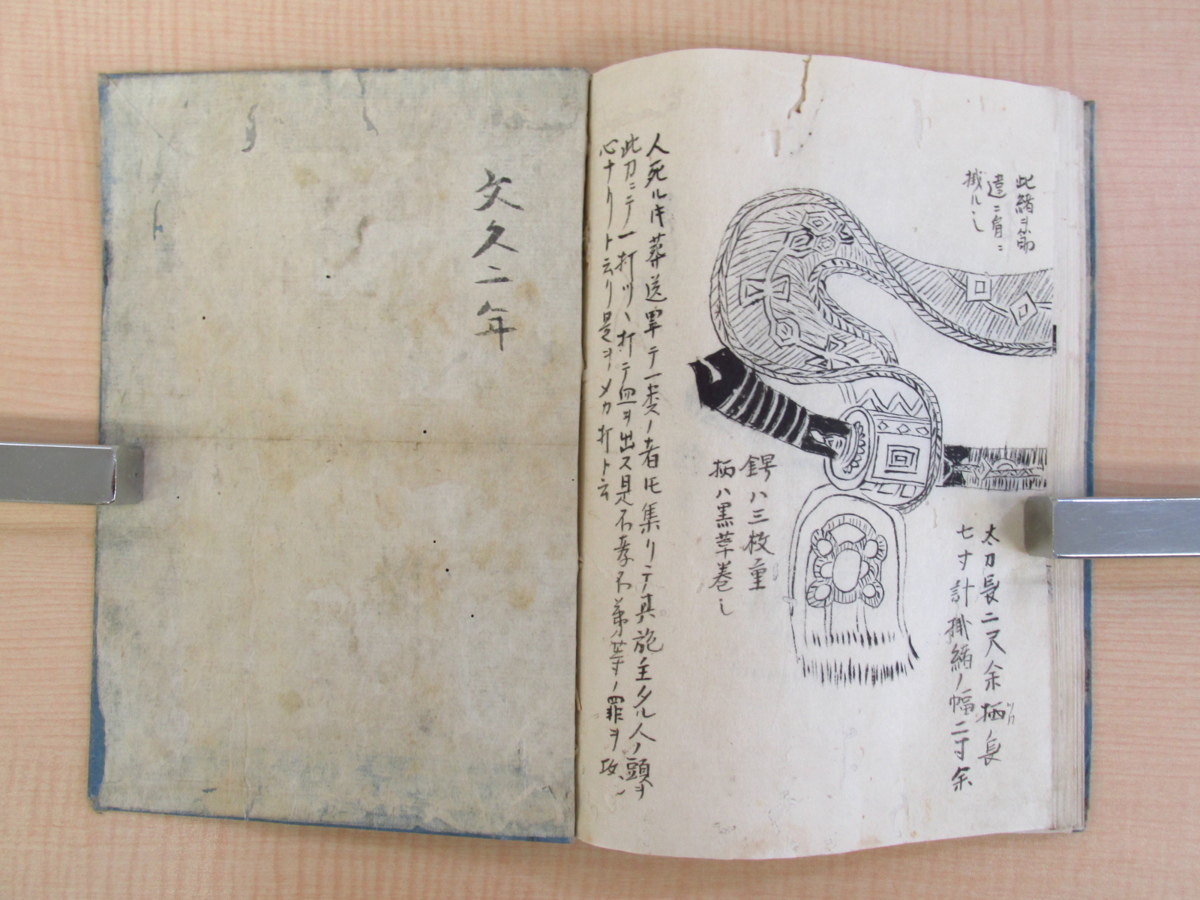 此緒ヲ筋
違ニ肩ニ
掛ルヘシ
太刀長二尺余柄長
ツカ
七寸計掛緒ノ幅二寸余
鍔ハ三枚重
柄ハ黒革巻シ
人死ル時葬送畢テ一類ノ者ドモ集リテ其施主タル人ノ頭ヲ
此刀ニテ一打ツヽ打テ血ヲ出ス是不孝不弟等ノ罪ヲ攻ル
心ナリト云リ是ヲメカ打ト云
文久二年